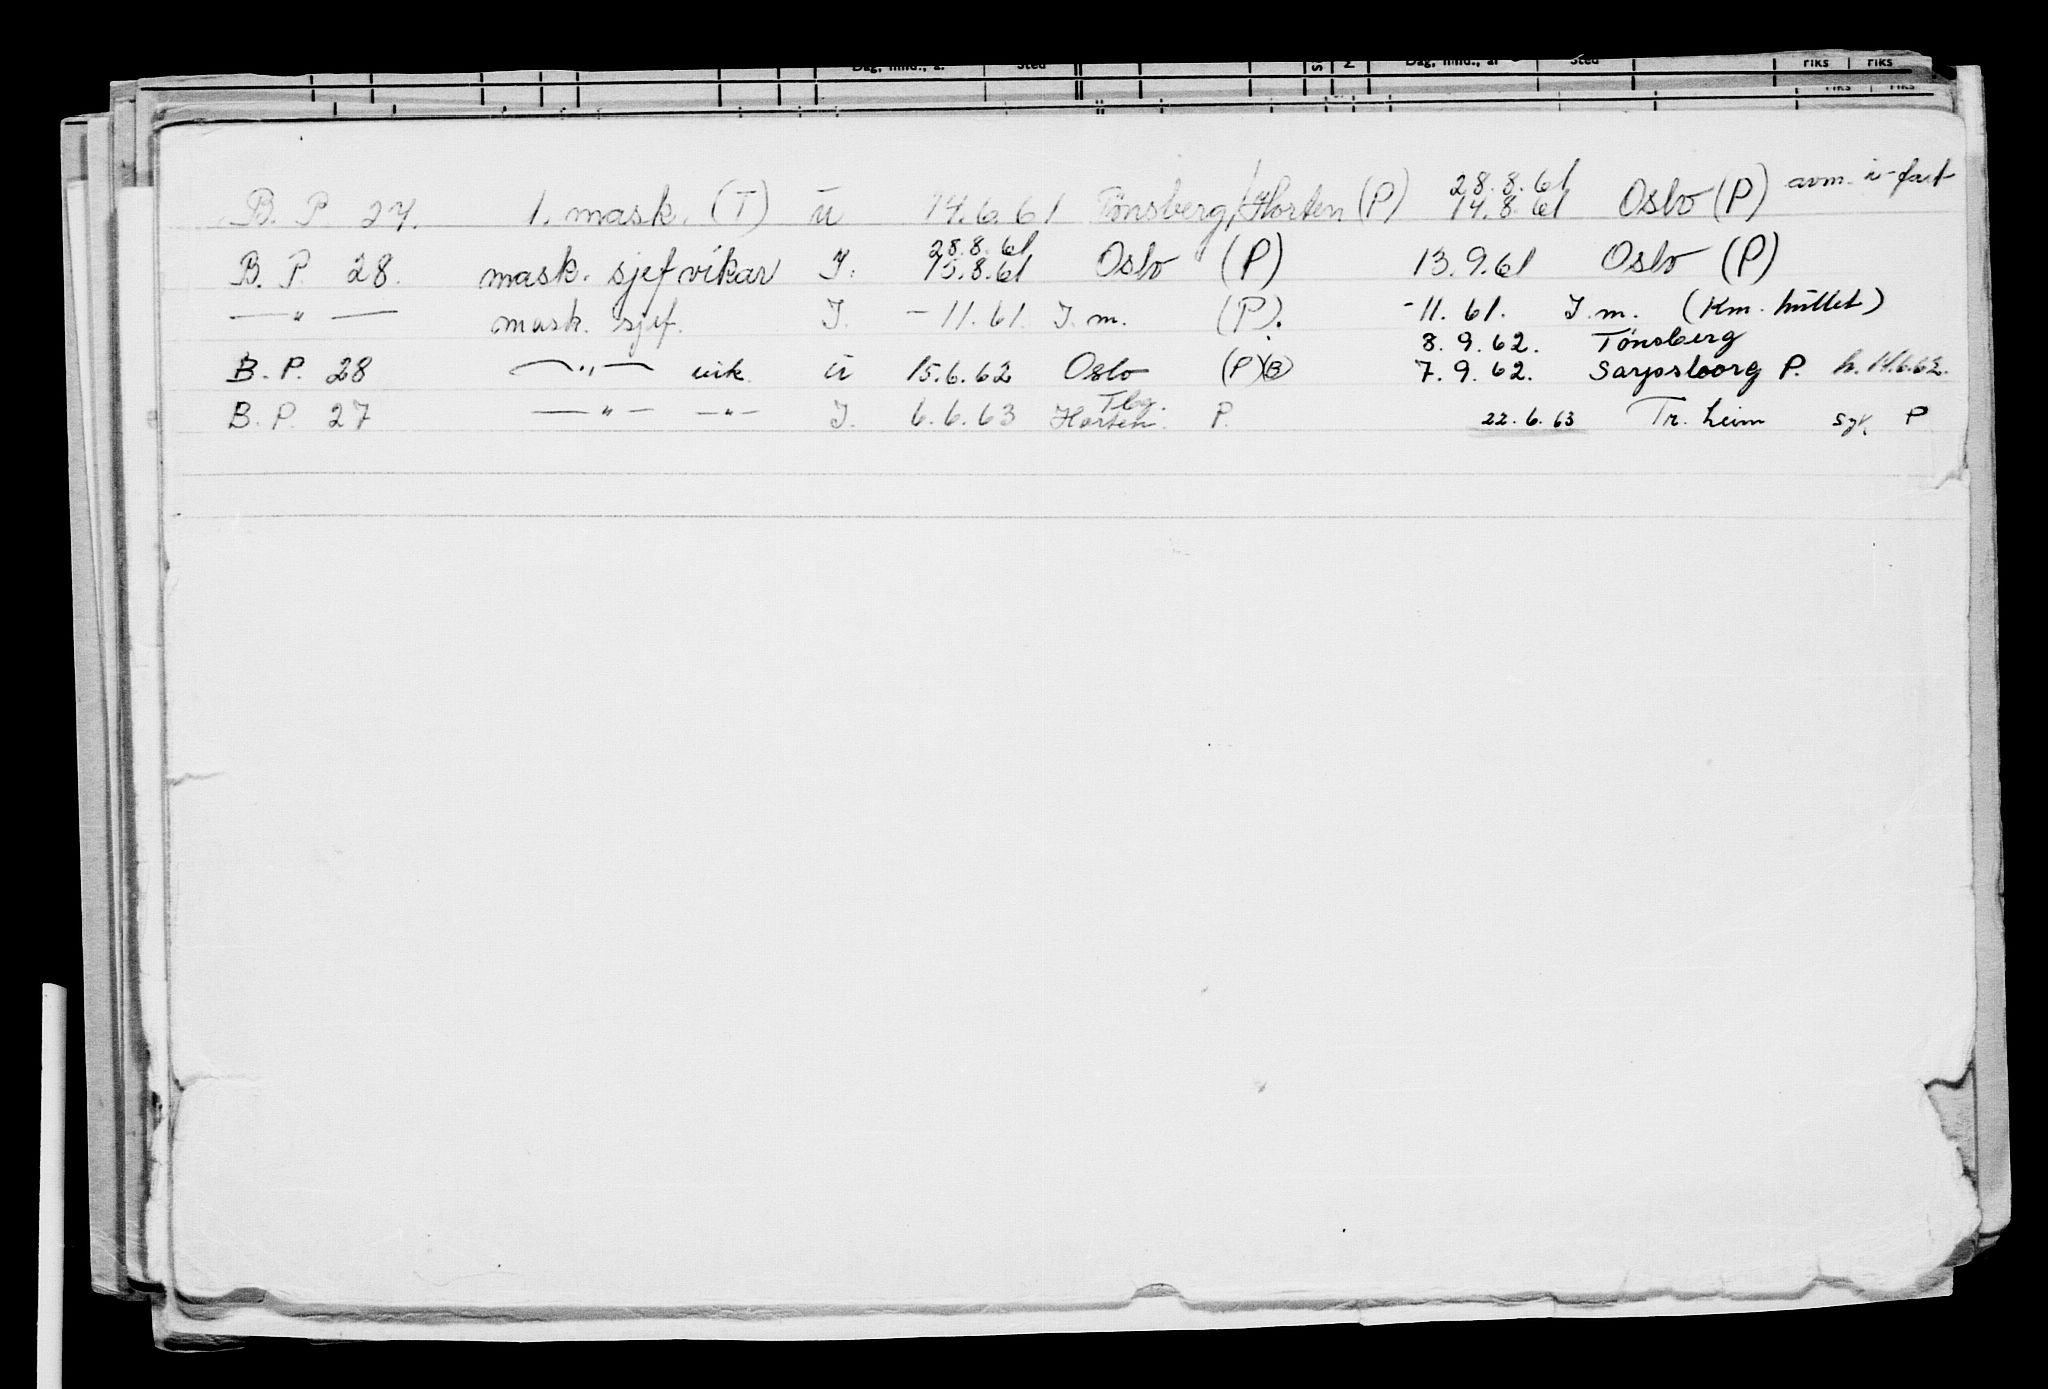 Dag, mnd., år Sted Dag, mnd., år Sted riks riks
riks riks
28.8.61 avm. u-fart
B. P. 27. 1. mask. (T) u 14.6.61 Tønsberg/Horten (P) 14.8.61 Oslo (P)
28.8.61
B. P. 28. mask. sjef vikar I. 15.8.61 Oslo (P) 13.9.61 Oslo (P)
—"— mask. sjef. I. -11.61. I. m. (P). -11.61. I. m. (Km. hullet)
8.9.62. Tönsberg
B. P. 28 —"— vik. u 15.6.62 Oslo (P)(B) 7.9.62. Sarpsborg P. h. 14.6.62.
Tbg.
B. P. 27 —"— —"— I. 6.6.63 Horten. P. 22.6.63 Tr. heim syk P